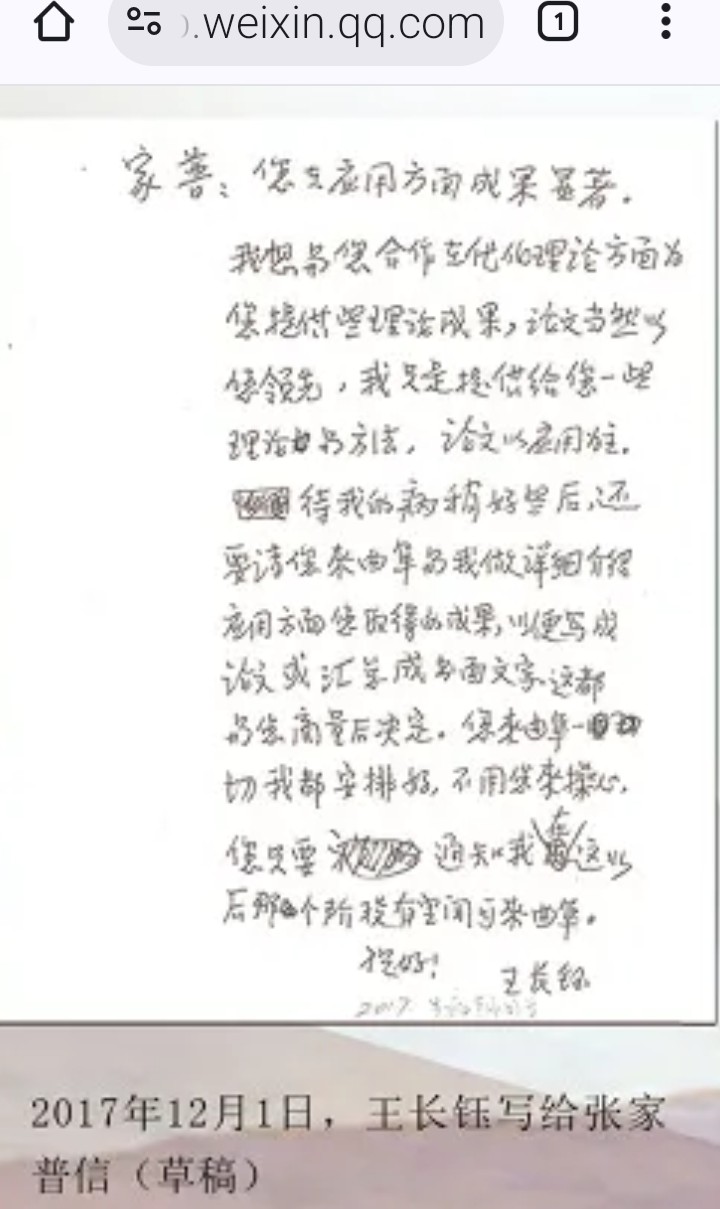 .weixin.qq.com
1
家普：您在应用方面成果显著。
我想与您合作在代们理论方面为
您提供些理论成果，论文当然以
您领先，我只是提供给您一些
理论与方法，论文以应用为主。
待我的病稍好些后，还
要请您来曲阜与我做详细介绍
应用方面您取得的成果，以便写成
论文或汇总成书面文字。这都
与您商量后决定。您来曲阜一
切我都安排好，不用您来操心。
您只要通知我在这以
后那个阶段有空闲可来曲阜。
祝好！ 王长钰
2017.
2017年12月1日，王长钰写给张家
普信（草稿）